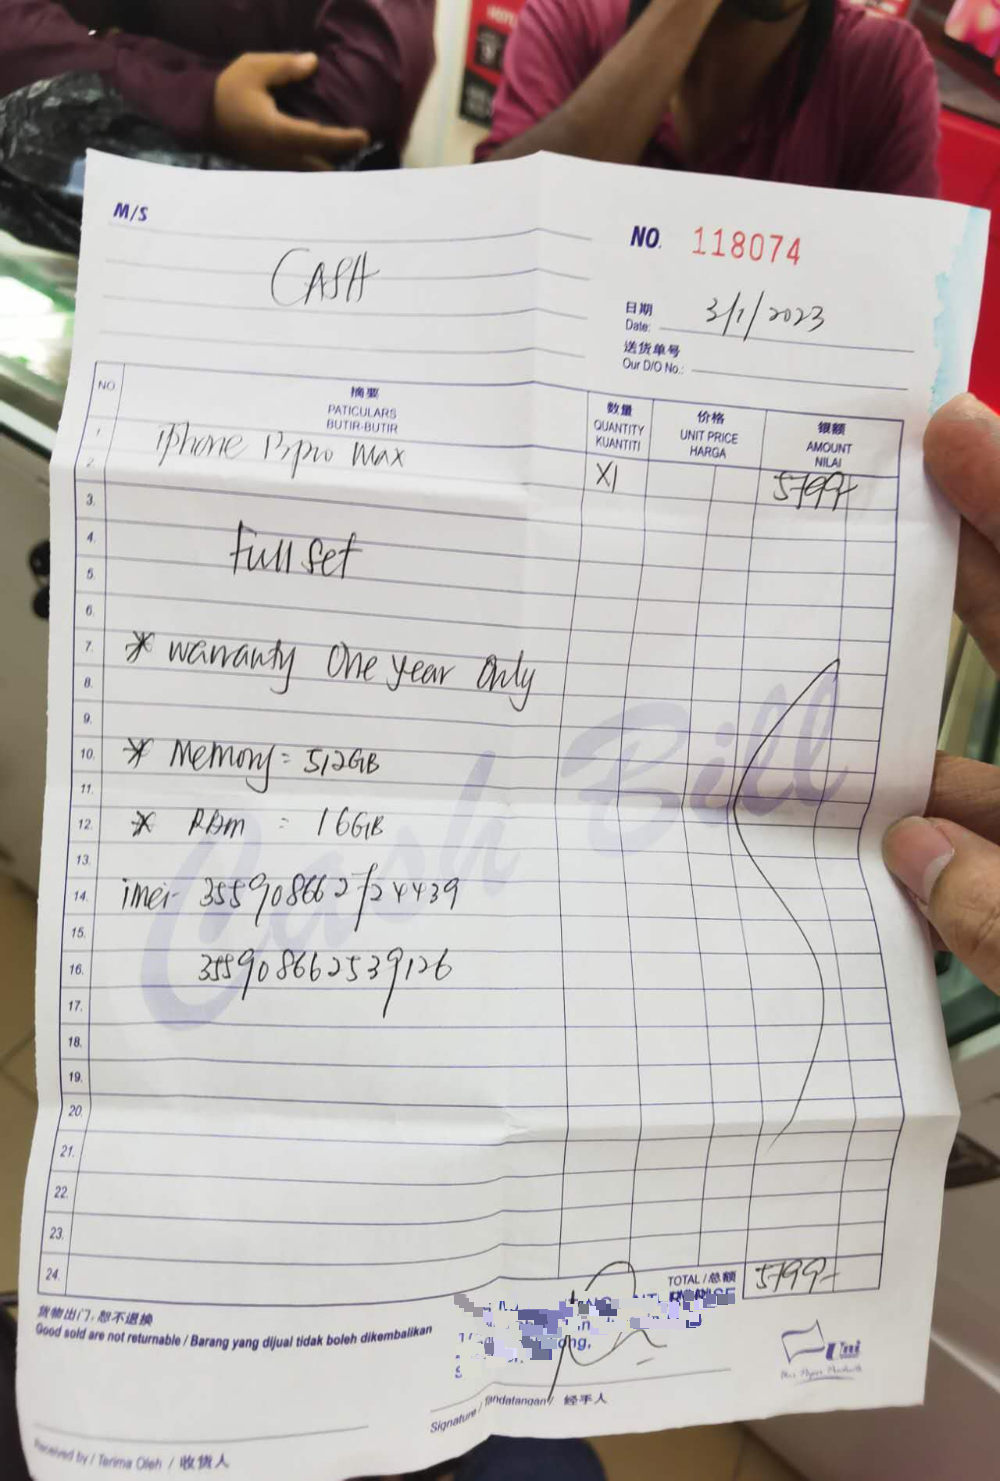 M/S
CASH
NO. 118074
日期
Date: 3/1/2023
送货单号
Our D/O No.:
NO 摘要 数量 价格 银额
PATICULARS QUANTITY UNIT PRICE AMOUNT
BUTIR-BUTIR KUANTITI HARGA NILAI
1. iphone 13 pro max
2. X1 5799/-
3.
4. Full set
5.
6.
7. * warranty One year Only
8.
9.
10. * Memory = 512GB
11.
12. * RAm = 16GB
13.
14. imei- 355908662724439
15.
16. 355908662539126
17.
18.
19.
20.
21.
22.
23.
24.
Cash Bill
TOTAL / 总额 5799/-
货物出门，恕不退换
Good sold are not returnable / Barang yang dijual tidak boleh dikembalikan
Signature / Tandatangan / 经手人
Received by / Terima Oleh / 收货人